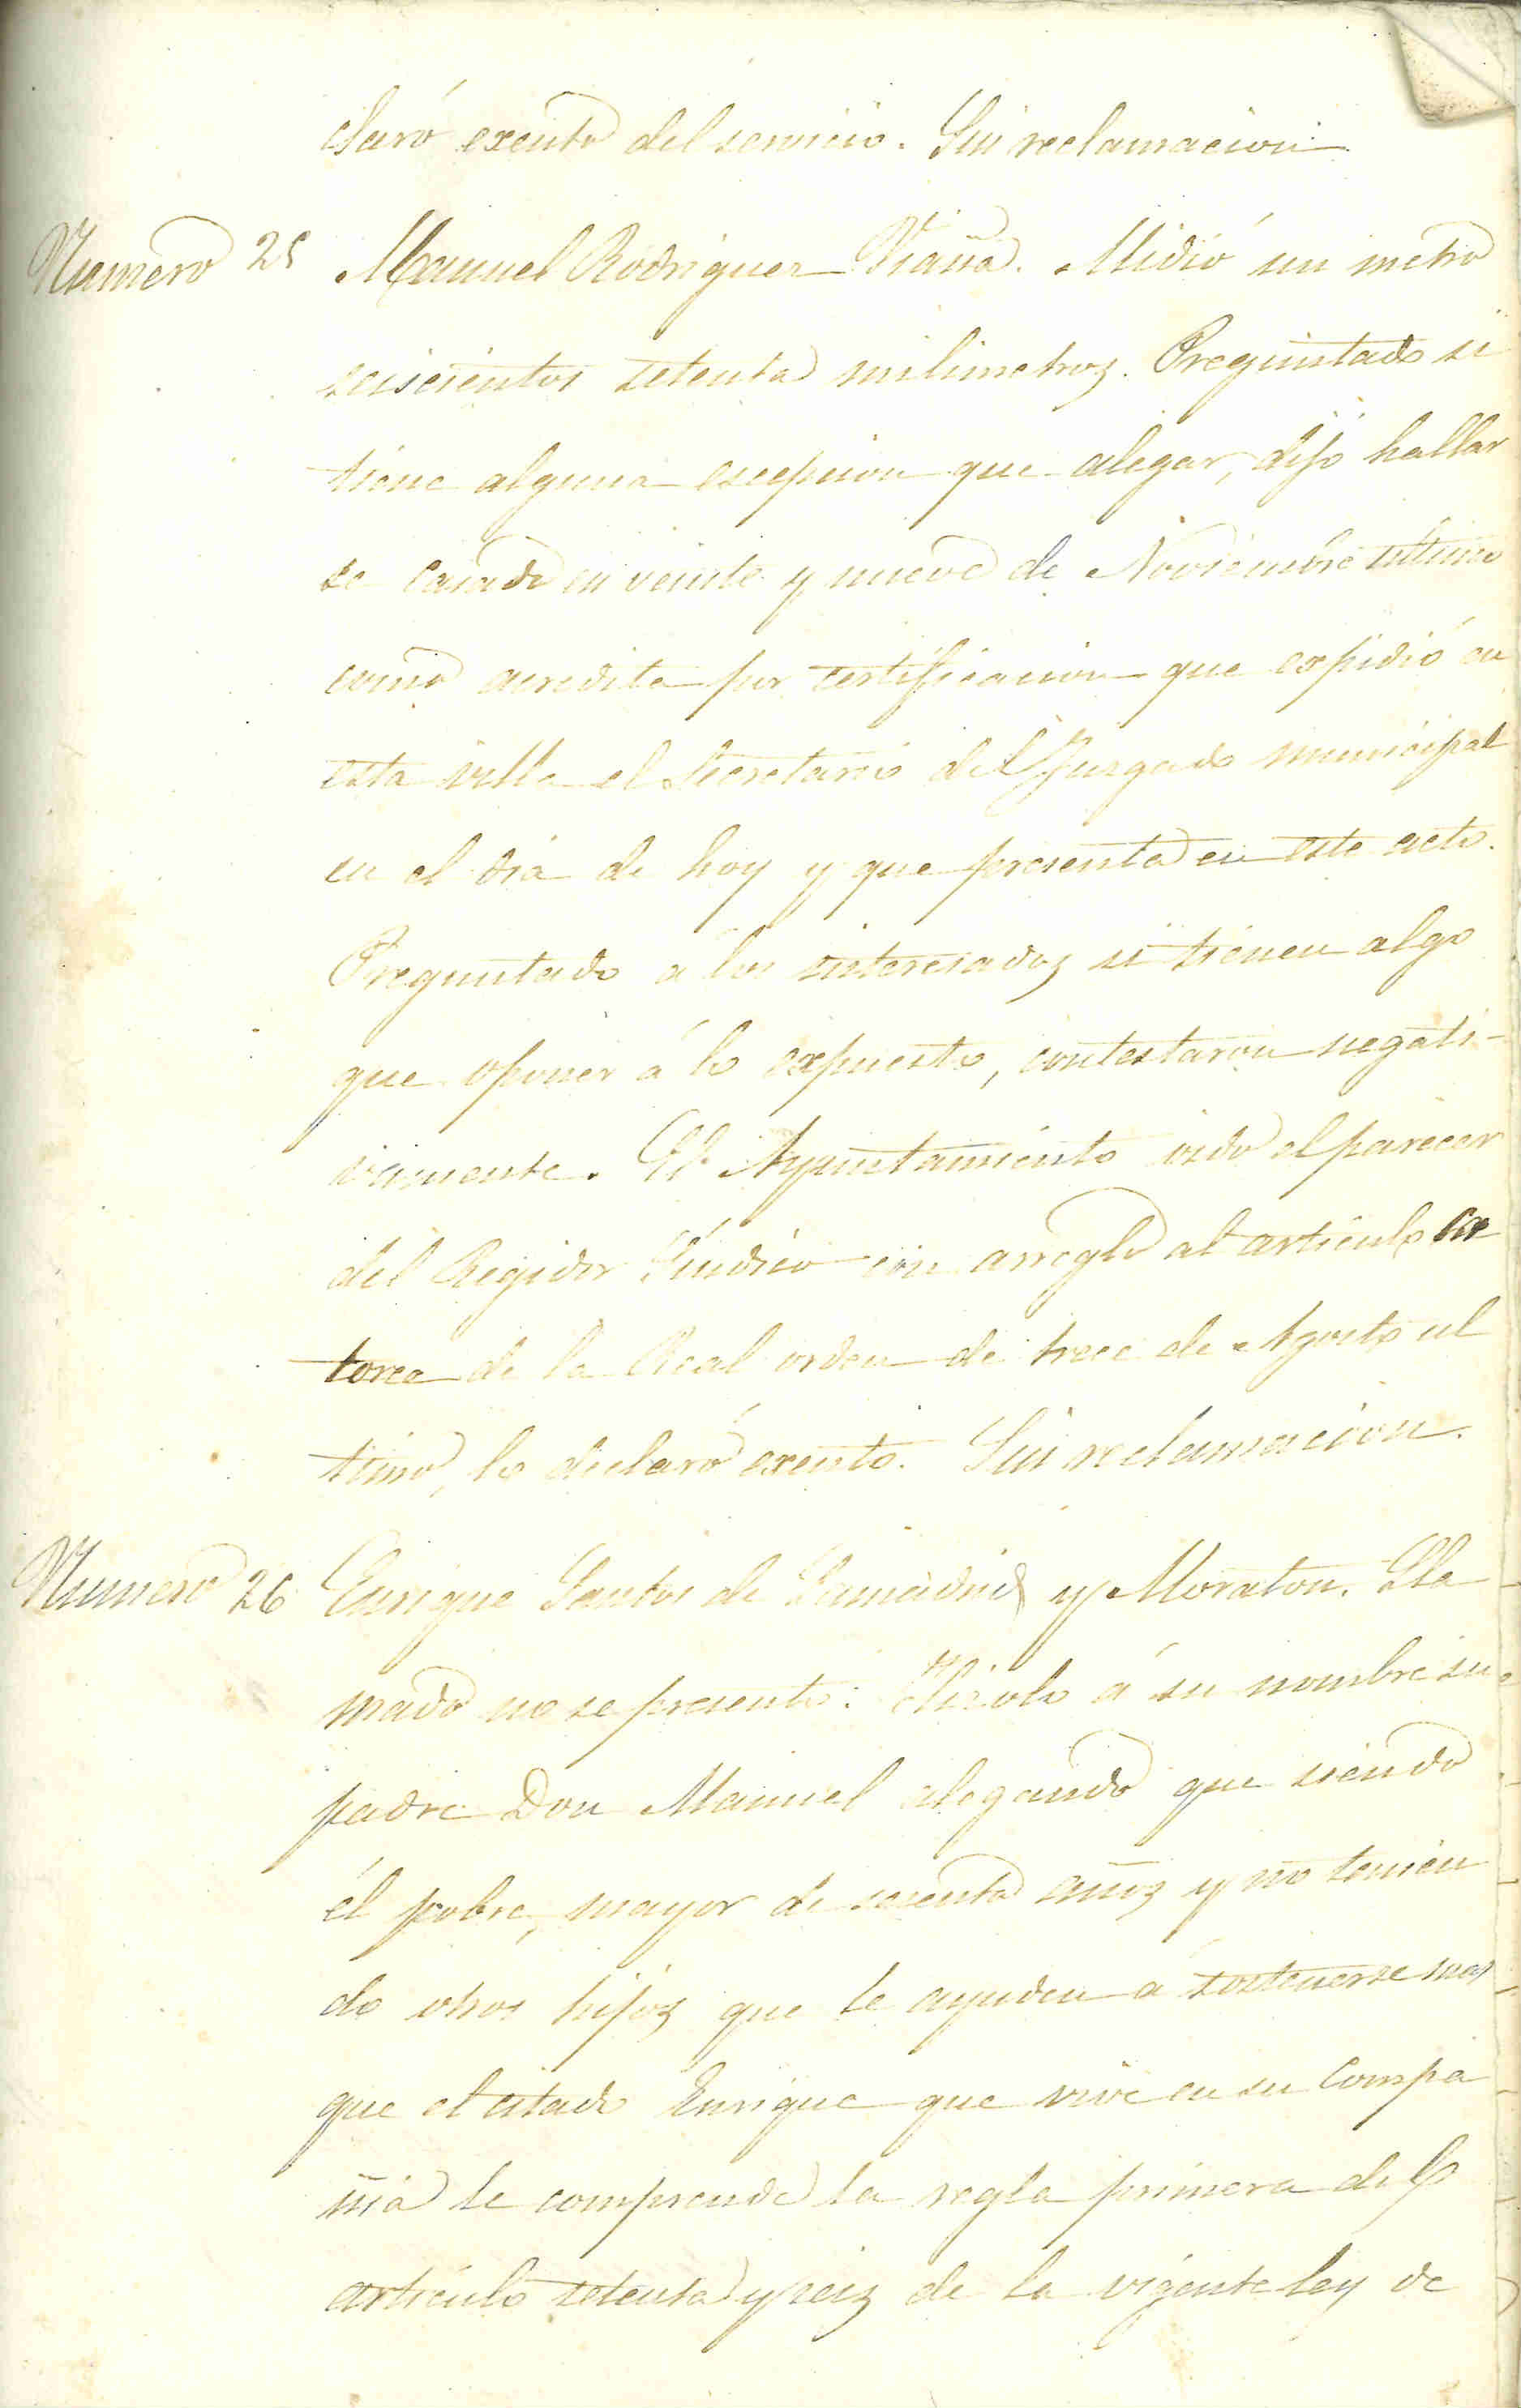 claró exento del servicio. Sin reclamacion
Numero 25 Manuel Rodriguez Viaña. Midió un metro
seiscientos setenta milimetros. Preguntado si
tiene alguna escepcion que alegar, dijo hallar
se casado en veinte y nueve de Noviembre ultimo
como acredita por certificacion que expidió en
esta villa el Secretario del Juzgado municipal
en el dia de hoy y que presenta en este acto.
Preguntado a los interesados si tienen algo
que oponer á lo expuesto, contestaron negati-
vamente. El Ayuntamiento oido el parecer
del Regidor Síndico con arreglo al articulo ca
torce de la Real orden de trece de Agosto ul
timo, lo declaró exento. Sin reclamacion.
Numero 26 Enrique Santos de Lamadrid y Moraton. Lla
mado no se presentó. Hizolo á su nombre su
padre Don Manuel alegando que siendo
él pobre, mayor de sesenta años y no tenien
do otros hijos que le ayuden a sostenerse mas
que el citado Enrique que vive en su compa
ñia le comprende la regla primera del
artículo setenta y seis de la vigente ley de